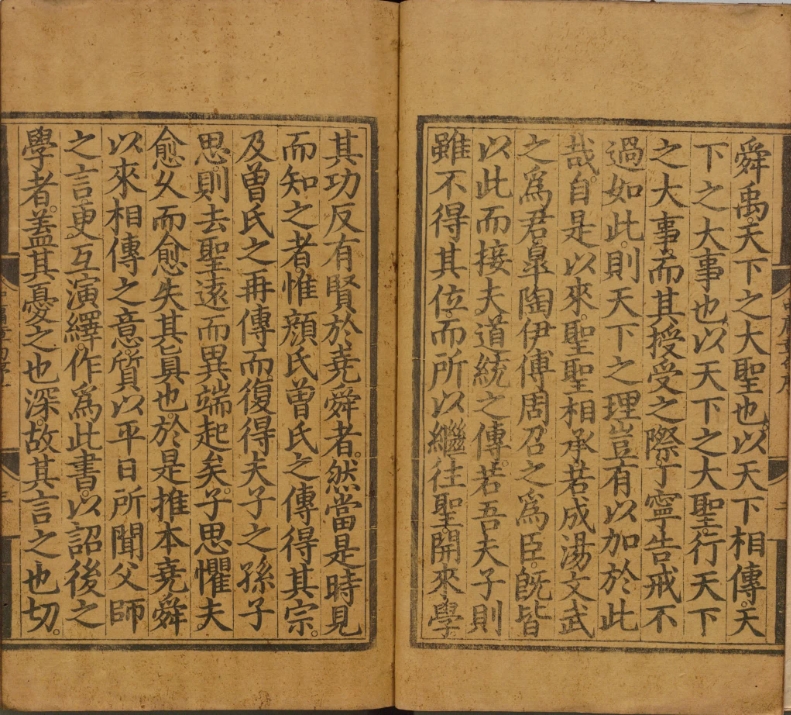 舜禹。天下之大聖也。以天下相傳。天
下之大事也。以天下之大聖。行天下
之大事。而其授受之際。丁寧告戒。不
過如此。則天下之理。豈有以加於此
哉。自是以來。聖聖相承。若成湯文武
之爲君。皐陶伊傅周召之爲臣。旣皆
以此而接夫道統之傳。若吾夫子。則
雖不得其位。而所以繼往聖開來學。
其功反有賢於堯舜者。然當是時。見
而知之者。惟顔氏曾氏之傳得其宗。
及曾氏之再傳。而復得夫子之孫子
思。則去聖遠而異端起矣。子思懼夫
愈久而愈失其眞也。於是推本堯舜
以來相傳之意。質以平日所聞父師
之言。更互演繹。作爲此書。以詔後之
學者。蓋其憂之也深。故其言之也切。